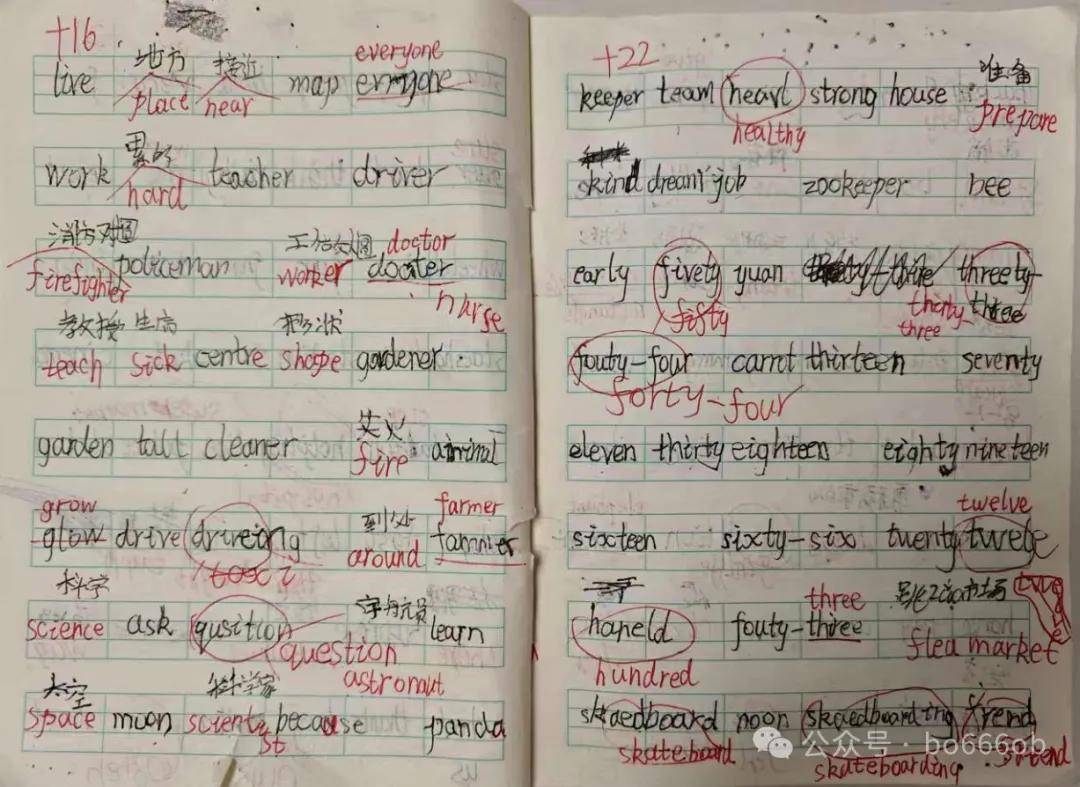 +16
everyone
地方 接近
live map
place near
work teacher driver
累的
hard
消防队员 doctor
policeman
firefighter worker
nurse
教授 生病 形状
teach sick centre shape gardener
garden talk cleaner animal
fire
grow farmer
glow drive driveing 到处
around
taxi
科学 宇航员
science ask qusition learn
question
astronaut
太空 科学家
space moon scienty because panda
st
+22
准备
keeper team heavl strong house
healthy prepare
skind dream job zookeeper bee
early fivety yuan threety-
three
fifty thirty-
three
fouty-four carrot thirteen seventy
forty-four
eleven thirty eighteen eighty nineteen
twelve
sixteen sixty-six twenty twefe
three
haneld fouty-three
flea market
hundred
skaedboard noon skaedboarding frend
skateboard
skateboarding
公众号 · bo666ob